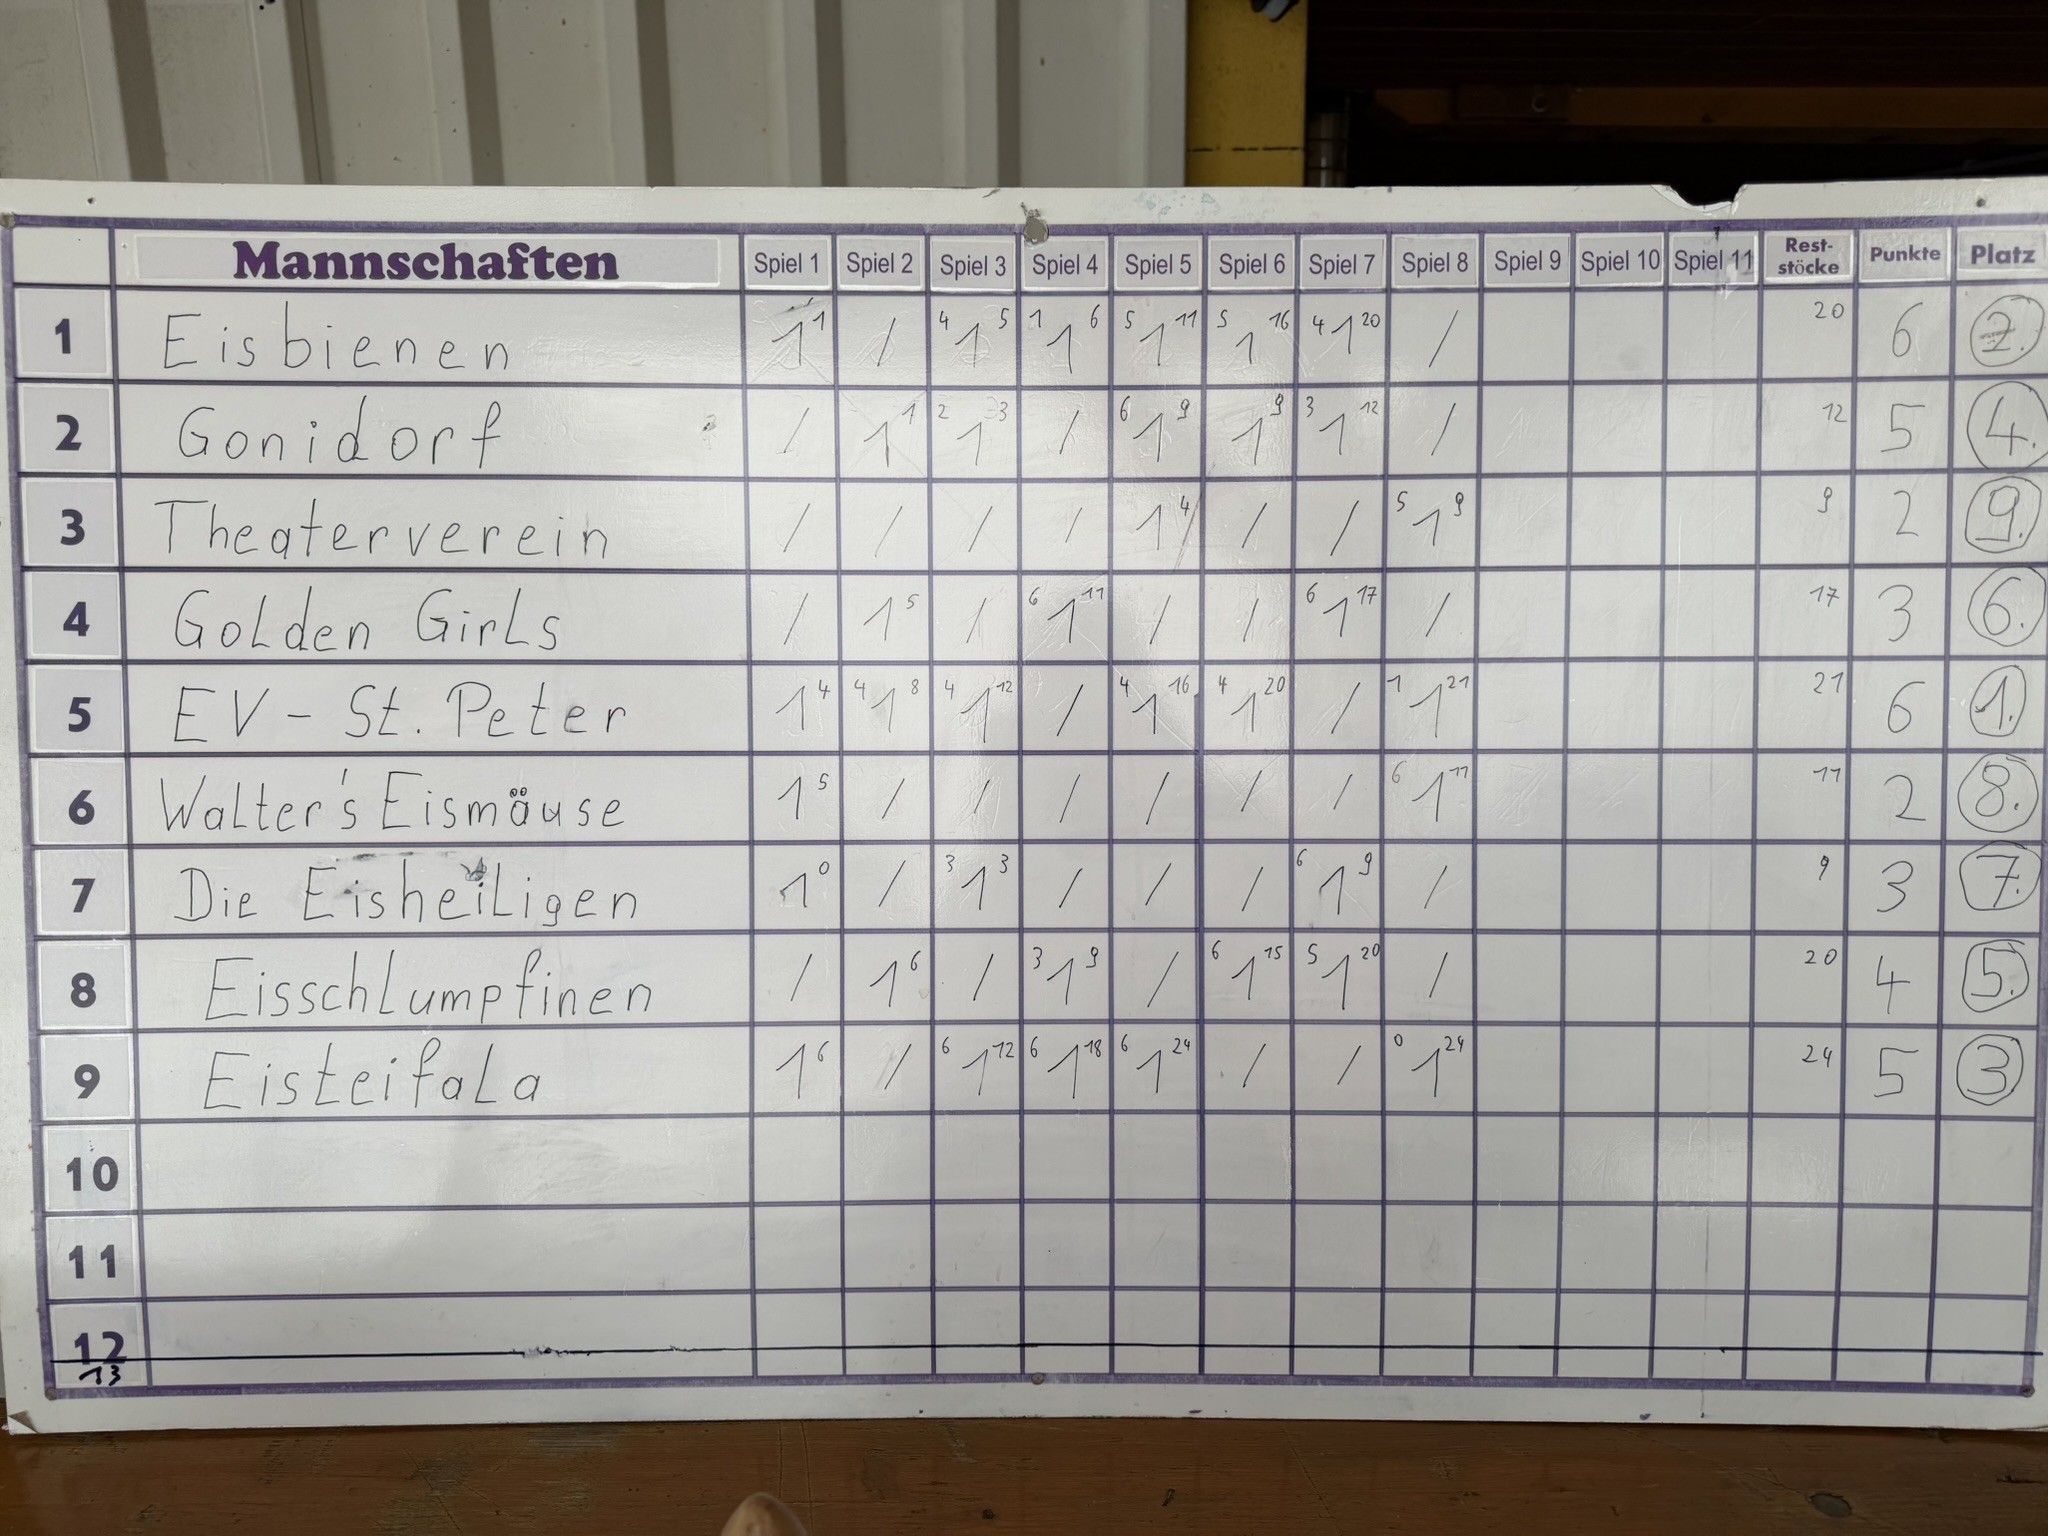 Mannschaften Spiel 1 Spiel 2 Spiel 3 Spiel 4 Spiel 5 Spiel 6 Spiel 7 Spiel 8 Spiel 9 Spiel 10 Spiel 11 Rest-stöcke Punkte Platz
1 Eisbienen 1 1 / 4 1 5 1 1 6 5 1 11 5 1 16 4 1 20 / 20 6 2.
2 Gonidorf / 1 1 2 1 3 / 6 1 9 1 9 3 1 12 / 12 5 4.
3 Theaterverein / / / / 1 4 / / 5 1 9 9 2 9.
4 Golden Girls / 1 5 / 6 1 11 / / 6 1 17 / 17 3 6.
5 EV - St. Peter 1 4 4 1 8 4 1 12 / 4 1 16 4 1 20 / 1 1 21 21 6 1.
6 Walter's Eismäuse 1 5 / / / / / / 6 1 11 11 2 8.
7 Die Eisheiligen 1 0 / 3 1 3 / / / 6 1 9 / 9 3 7.
8 Eisschlumpfinen / 1 6 / 3 1 9 / 6 1 15 5 1 20 / 20 4 5.
9 Eisteifala 1 6 / 6 1 12 6 1 18 6 1 24 / / 0 1 24 24 5 3.
10
11
12
13